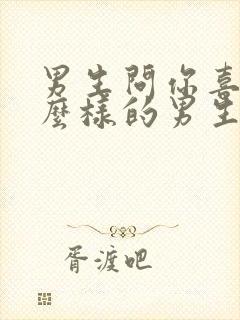 男生問你喜
麼樣的男生
胥渡吧